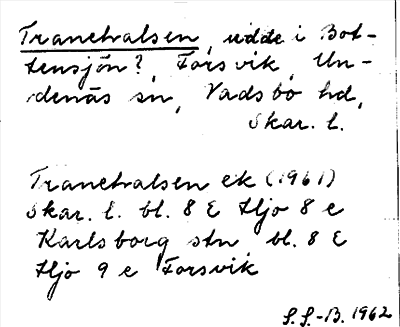 Tranehalsen, udde i Bot-
tensjön?, Forsvik, Un-
denäs sn, Vadsbo hd,
Skar. l.
Tranehalsen ek (1961)
Skar. l. bl. 8 E Hjo 8 e
Karlsborg stn bl. 8 E
Hjo 9 e Forsvik
S. S.-B. 1962